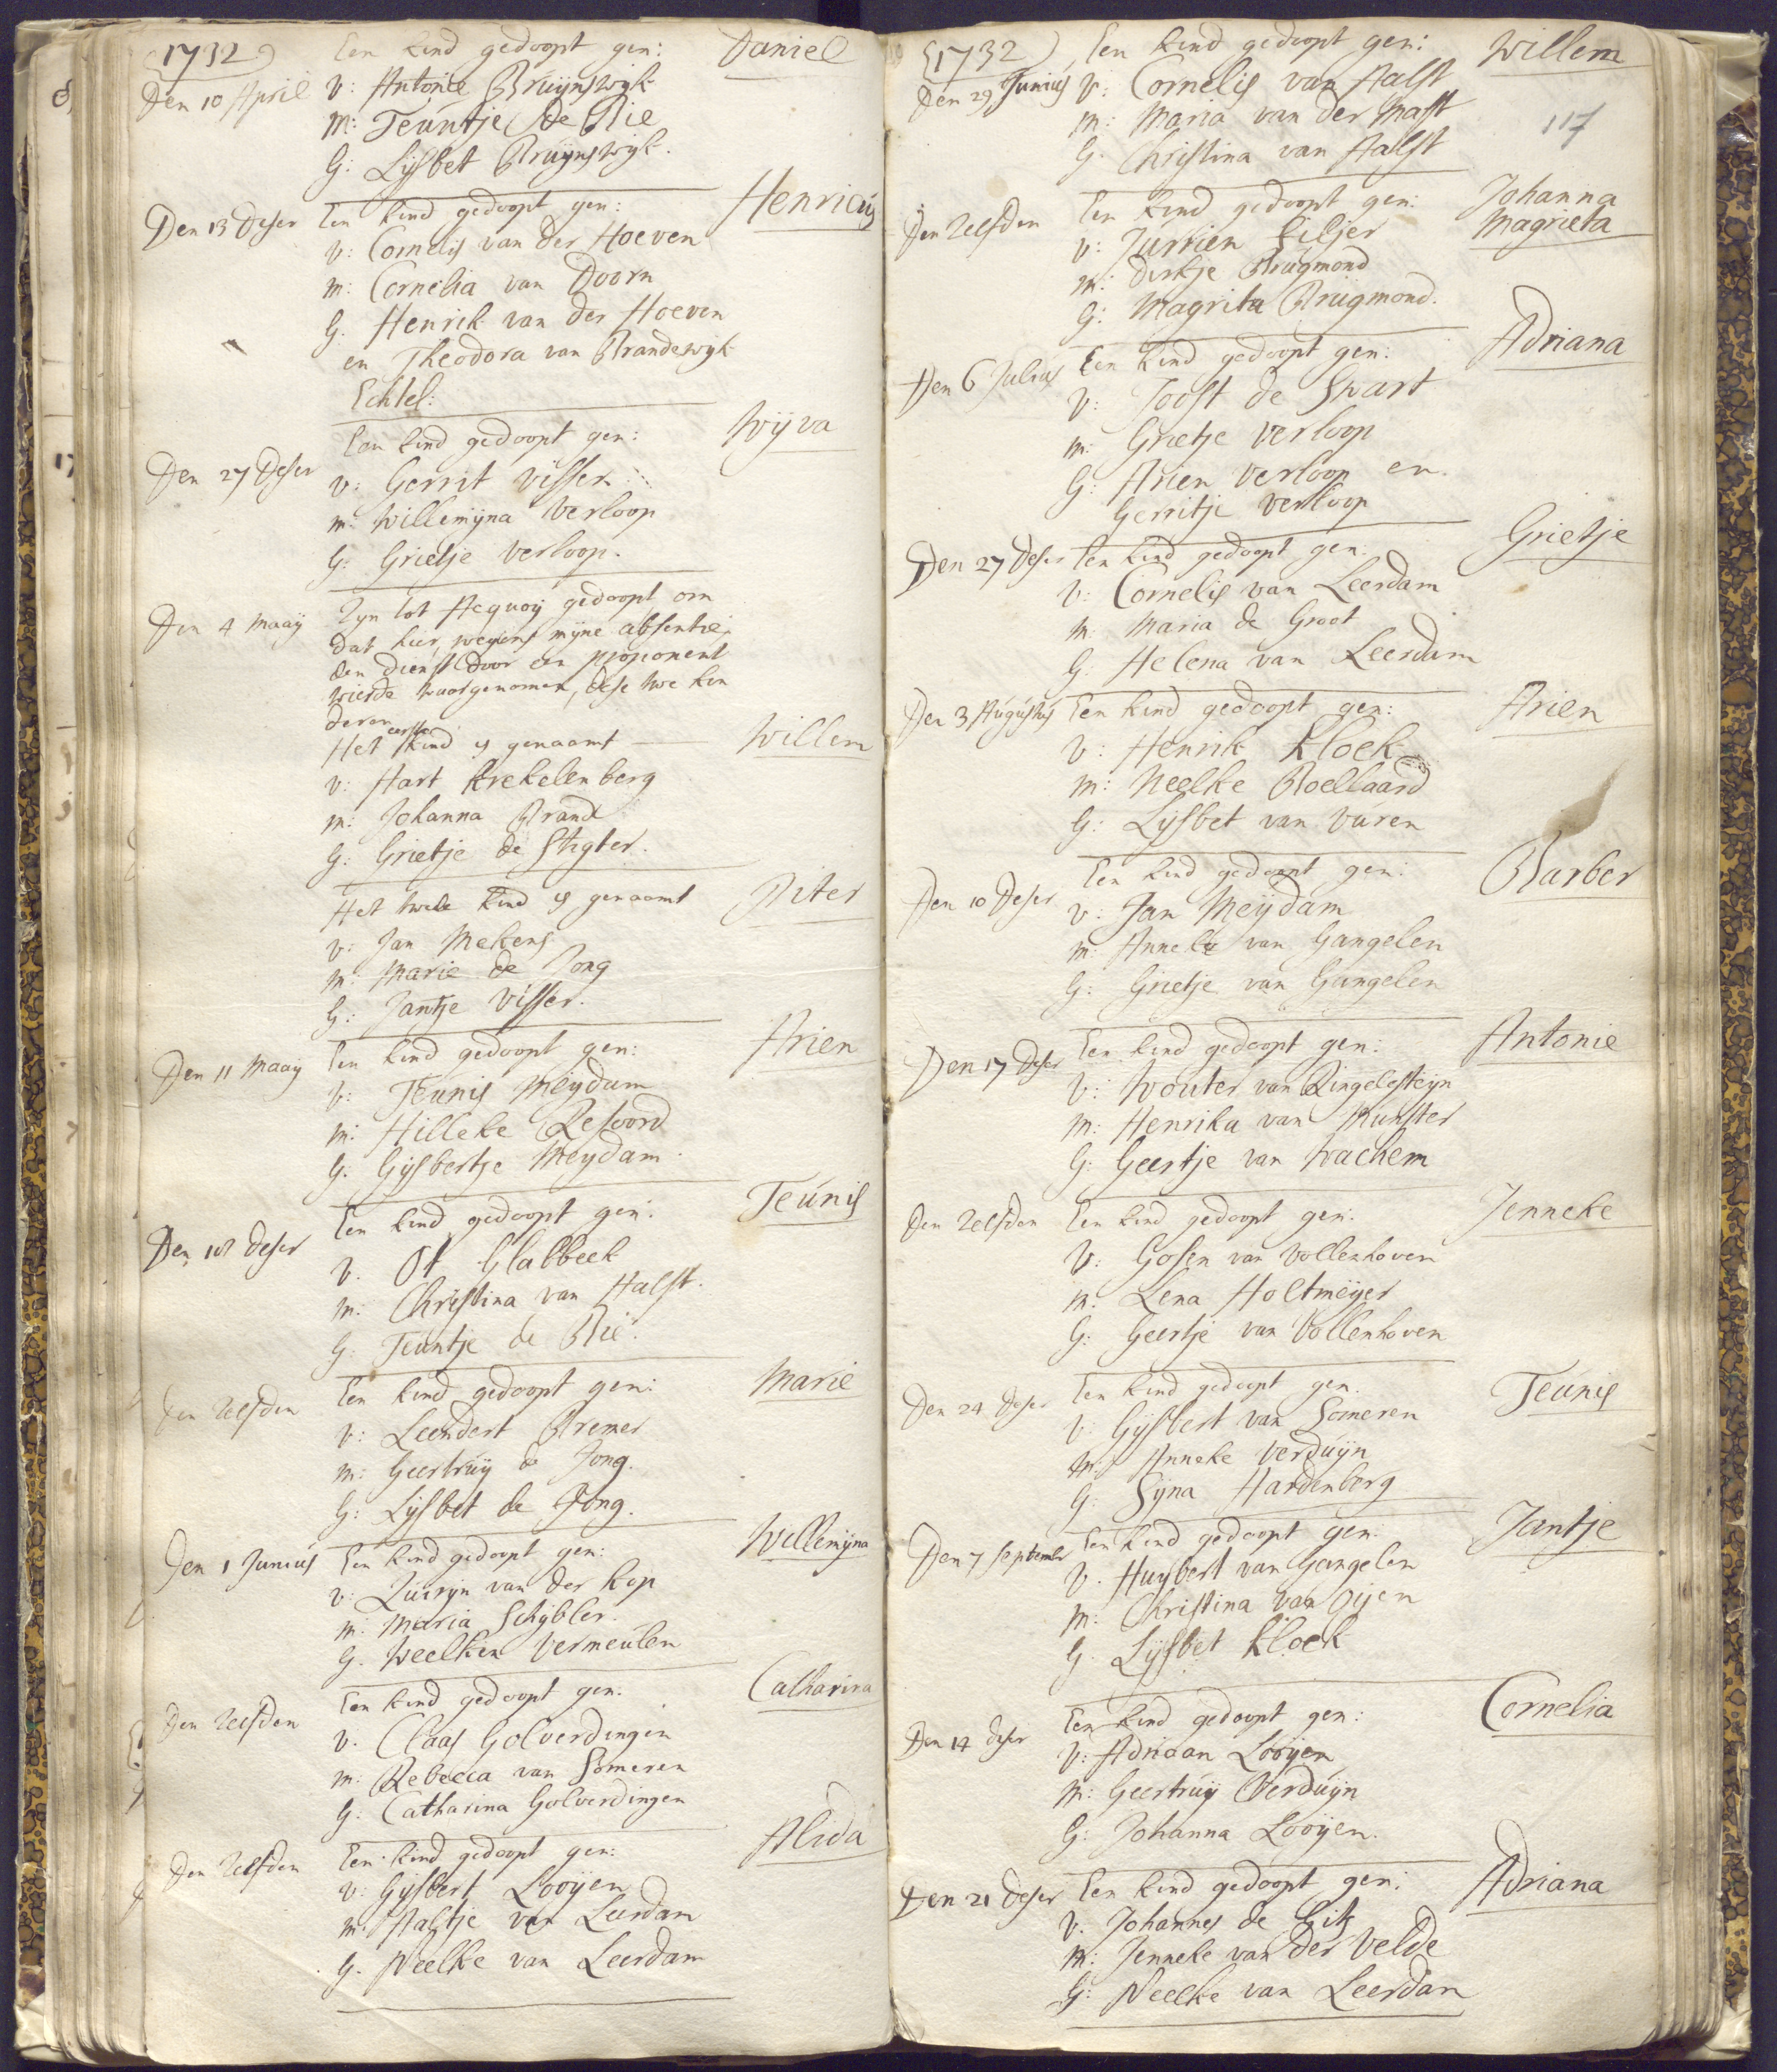 1732
Een kind gedoopt gen: Daniel
Den 10 April v: Antonie Bruijnswijk
m: Teúntje De Bie
G: Lijsbet Bruijnswijk.
Den 13 Deser Een kind gedoopt gen: Henricús
v: Cornelis van der Hoeven
m: Cornelia van Doorn
G. Henrik van der Hoeven
en Theodora van Brandeswijk
Echtel:
Een kind gedoopt gen: Wijva
Den 27 Deser v: Gerrit Visser
m: Willemijna Verloop
G: Grietje Verloop.
Den 4 Maaij Zijn tot Acquoij gedoopt om
dat hier, wegens mijne absentie,
den dienst door een proponent
wierde waargenomen, dese twe kin
deren
Het eerste kind is genaamt Willem
v: Aart Krekelenberg
m: Johanna Brand
G: Grietje de Stigter.
Het twede kind is genaamt Piter
v: Jan Mekens
m: Marie de Jong
G: Jantje Visser.
Den 11 Maaij Een kind gedoopt gen: Arien
v: Teunis Meijdam
m: Hilleke Resoord
G. Gijsbertje Meijdam.
Den 18 deser Een kind gedoopt gen: Teúnis
v. Ot Glabbeek
m: Christina van Aalst.
G. Teuntje de Bie.
den zelfden Een kind gedoopt gen: Marie
v: Leendert Bremer
m: Geertruij de Jong.
G: Lijsbet de Jong.
Den 1 Juniús Een kind gedoopt gen: Willemijna
v: Quirijn van der Kop
m: Maria Schijbler.
G. Weelken Vermeulen
Den zelfden Een kind gedoopt gen: Catharina
v. Claas Golverdingen
m. Rebecca van Someren
G: Catharina Golverdingen
Den zelfden Een kind gedoopt gen: Alida
v: Gijsbert Looijen
m: Aaltje van Leerdam
G. Neelke van Leerdam
1732 Een kind gedoopt gen: Willem
Den 29 Junius v: Cornelis van Aalst
m: Maria van der Mast
117
G. Christina van Aalst
Den zelfden Een kind gedoopt gen: Johanna
Magrieta
v: Júrrien Siljer
m: Dirkje Brugmond
G: Magrita Brugmond.
Den 6 Julius Een kind gedoopt gen: Adriana
v: Joost de Swart
m: Grietje Verloop
G: Arien Verloop en
Gerritje Verloop
Den 27 Deser Een kind gedoopt gen: Grietje
v: Cornelis van Leerdam
m. Maria de Groot
G. Helena van Leerdam
Den 3 Aúgústús Een kind gedoopt gen: Arien
v: Henrik Kloek
m: Neelke Roellaard
G: Lijsbet van Vúren
Een kind gedoopt gen: Barber
Den 10 Deser v: Jan Meijdam
m. Anneke van Gangelen
G: Grietje van Gangelen
Den 17 Deser Een kind gedoopt gen: Antonie
v: Wouter van Ringelesteijn
m: Henrika van Munster
G: Geertje van Wachem
Den zelfden Een kind gedoopt gen: Jenneke
v: Gosen van Vollenhoven
m. Lena Holtmeijer
G: Geertje van Vollenhoven
Den 24 deser Een kind gedoopt gen. Teúnis
v: Gijsbert van Someren
m: Anneke Verduijn
G. Sijna Hardenberg
Den 7 September Een kind gedoopt gen. Jantje
v. Huijbert van Gangelen
m: Christina van Oijen
G. Lijsbet Kloek
Den 14 deser Een kind gedoopt gen: Cornelia
v: Adriaan Looijen
m: Geertruij Verduijn
G: Johanna Looijen.
Den 21 deser Een kind gedoopt gen: Adriana
v. Johannes de Gits
m: Jenneke van der Velde
G: Neelke van Leerdam